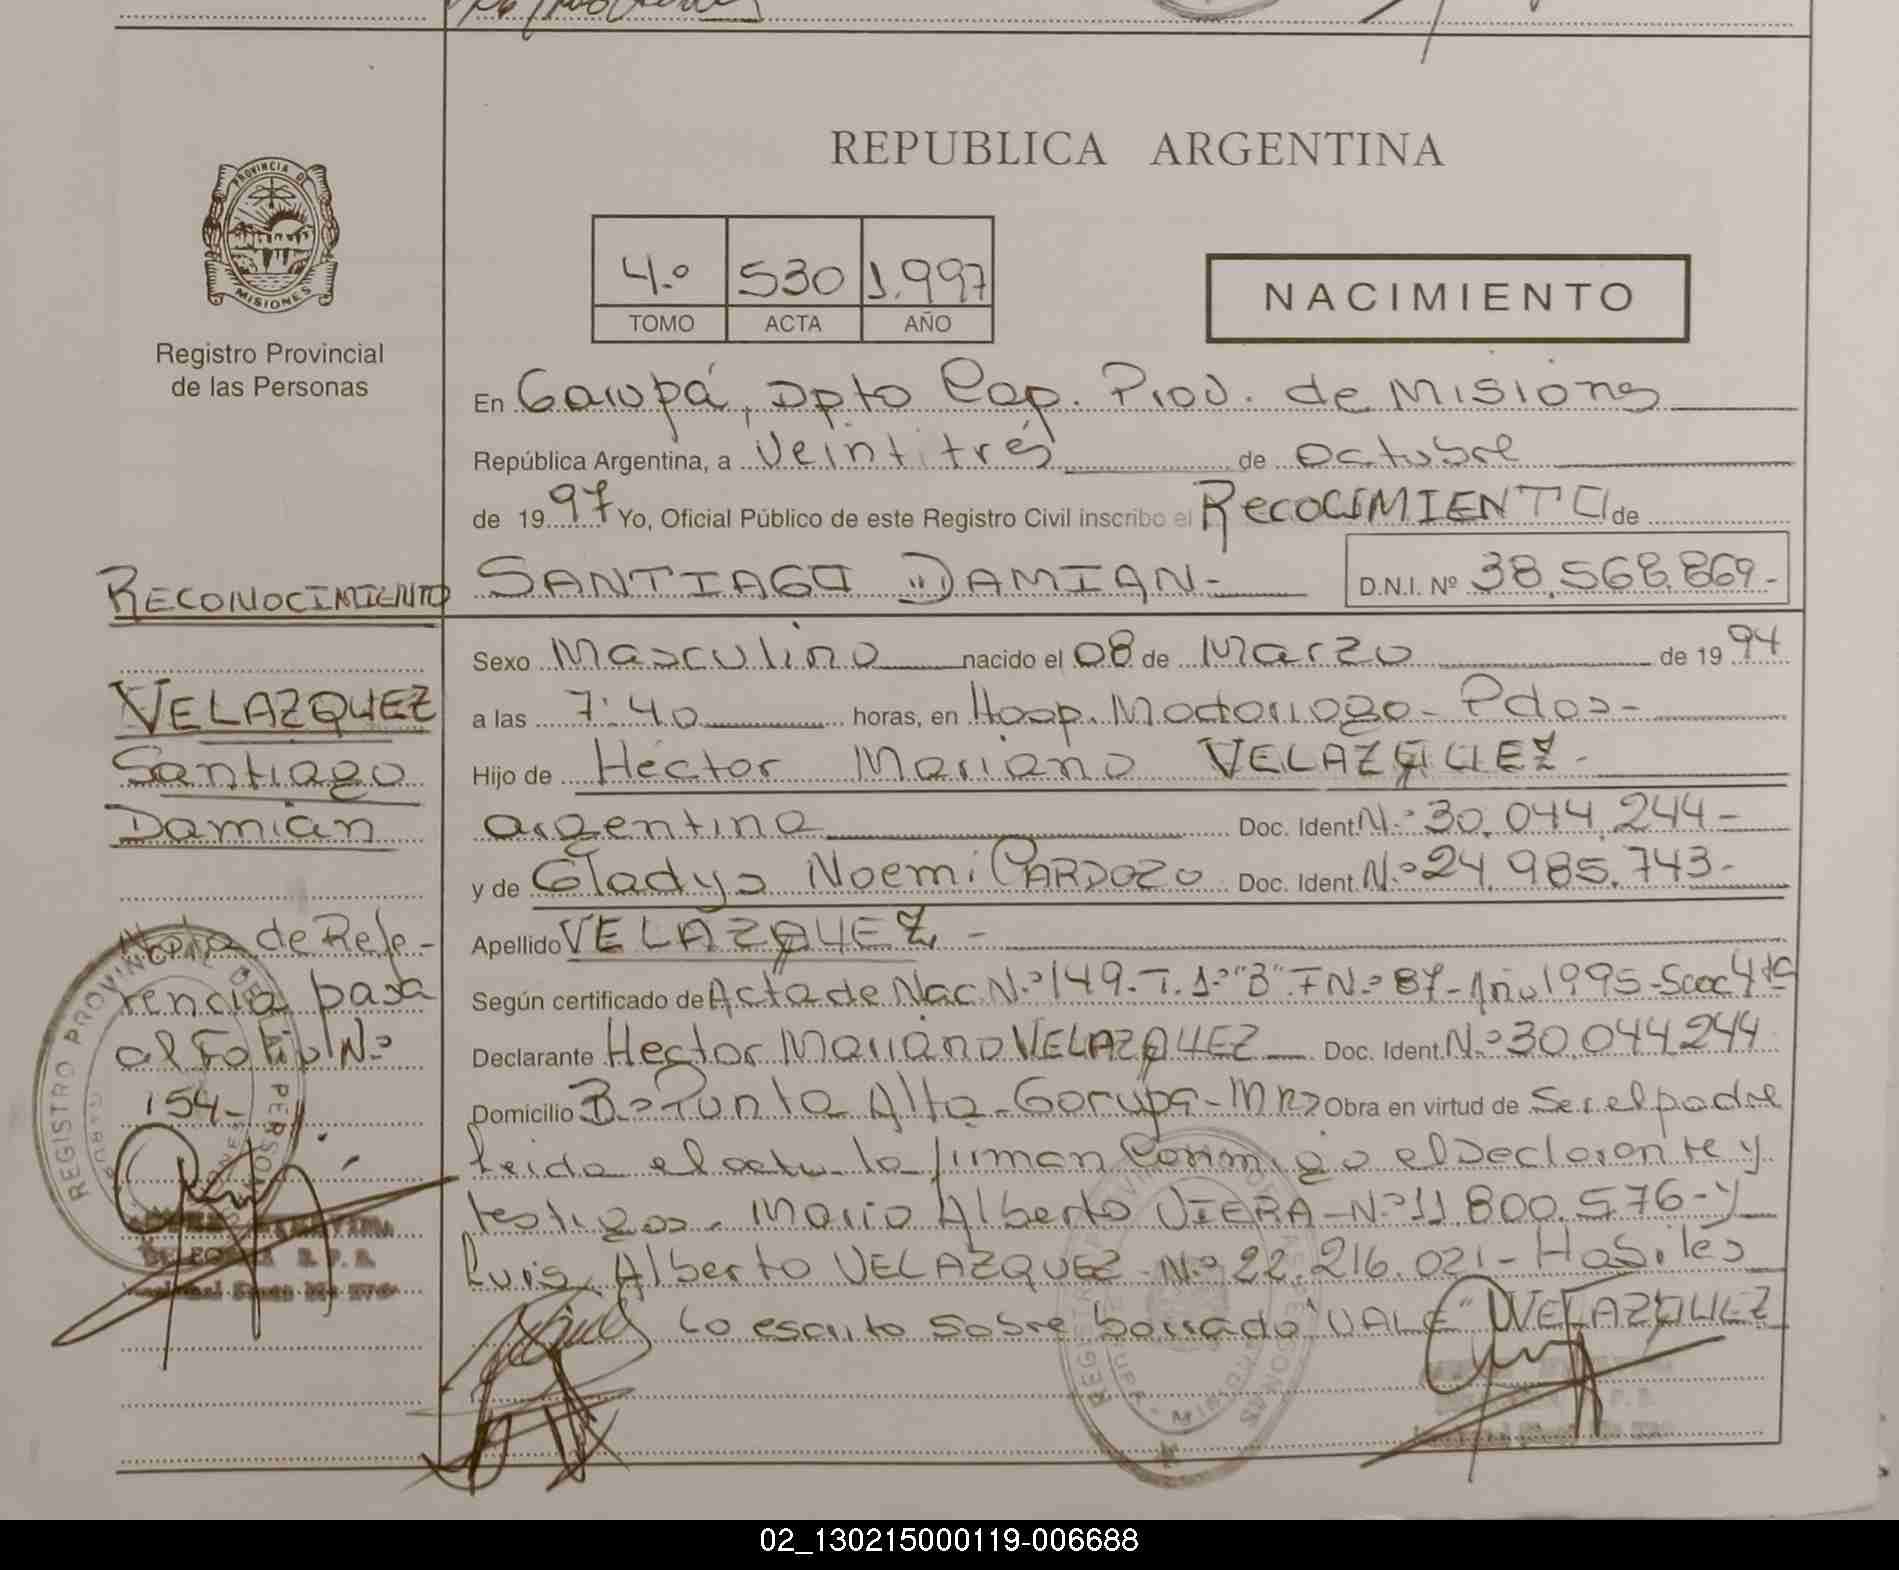 REPUBLICA ARGENTINA
PROVINCIA DE
MISIONES
Registro Provincial
de las Personas
4.º 530 1.997
TOMO ACTA AÑO
NACIMIENTO
En Garupá, Dpto Cap. Prov. de Misiones
República Argentina, a Veintitrés de Octubre
de 1997 Yo, Oficial Público de este Registro Civil inscribo el RecoCIMIENTO de
SANTIAGO DAMIAN- D.N.I. Nº 38.568.869-
RECONOCIMIENTO
VELAZQUEZ
Santiago
Damián
Nota de Refe-
rencia pasa
al Folio Nº
154-
Sexo Masculino nacido el 08 de Marzo de 1994
a las 7:40 horas, en Hosp. Madariaga- Pdas-
Hijo de Héctor Mariano VELAZQUEZ-
argentino Doc. Ident. N.º 30.044.244-
y de Gladys Noemi CARDOZO Doc. Ident. N.º 24.985.743-
Apellido VELAZQUEZ, -
Según certificado de Acta de Nac. N.º 149-T.1º"B"-F N.º 87-Año 1995-Secc 4ta
Declarante Hector Mariano VELAZQUEZ Doc. Ident. N.º 30.044.244
Domicilio Bº Punta Alta-Garupá-Mnes Obra en virtud de Ser el padre
leida el acta la firman Conmigo el Declarante y
testigos. Mario Alberto VIERA-Nº 11.800.576-y
Luis Alberto VELAZQUEZ-N.º 22.216.021-Habiles
Lo escrito sobre borrado "VALE" VELAZQUEZ
REGISTRO PROVINCIAL DE LAS PERSONAS
02_130215000119-006688